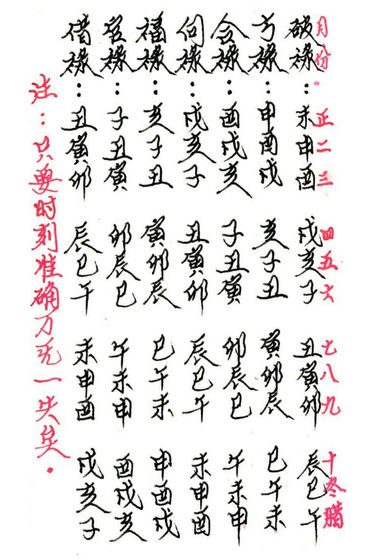 月份：正二三 四五六 七八九 十冬腊
破禄：未申酉 戌亥子 丑寅卯 辰巳午
亏禄：申酉戌 亥子丑 寅卯辰 巳午未
禄：酉戌亥 子丑寅 卯辰巳 午未申
伺禄：戌亥子 丑寅卯 辰巳午 未申酉
福禄：亥子丑 寅卯辰 巳午未 申酉戌
禄：子丑寅 卯辰巳 午未申 酉戌亥
借禄：丑寅卯 辰巳午 未申酉 戌亥子
注：只要时刻准确万无一失矣。